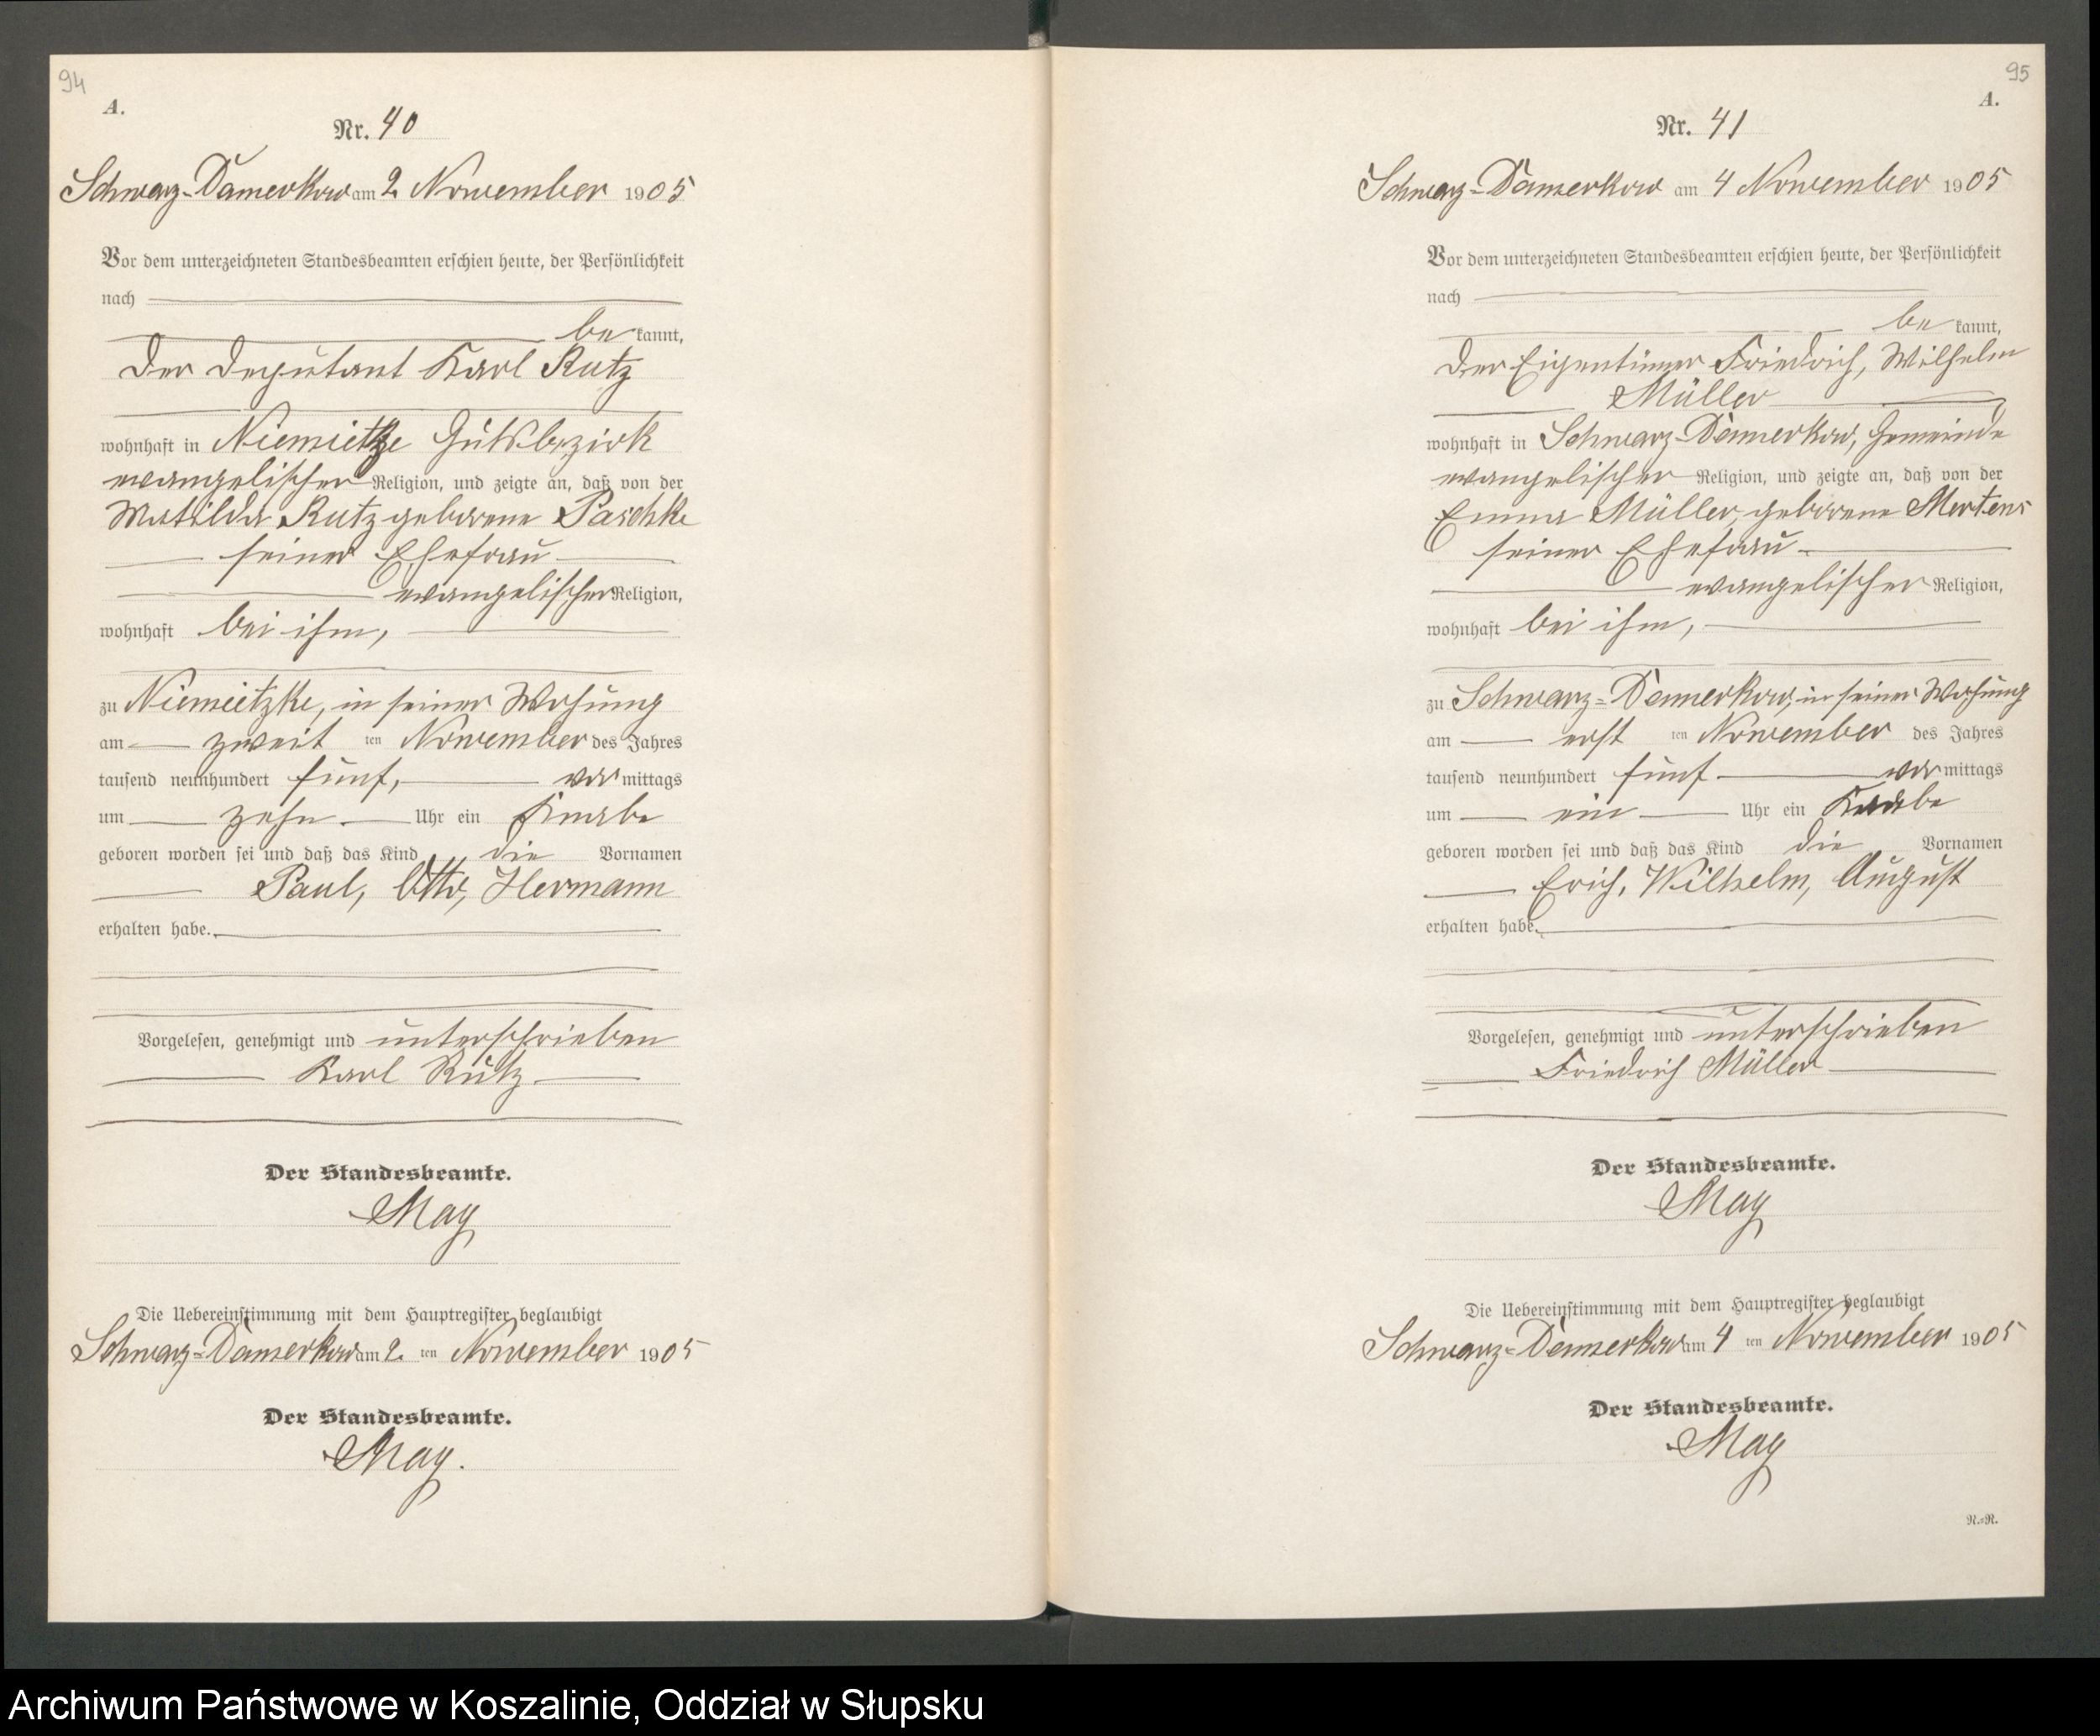 94
A.
Nr. 40
Schwarz-Damerkow am 2 November 1905
Vor dem unterzeichneten Standesbeamten erschien heute, der Persönlichkeit
nach
be kannt,
der Deputant Karl Rutz
wohnhaft in Niemietzke Gutsbezirk
evangelischer Religion, und zeigte an, daß von der
Matilda Rutz geborene Paschke
seiner Ehefrau
evangelischer Religion,
wohnhaft bei ihm,
zu Niemietzke, in seiner Wohung
am zweit ten November des Jahres
tausend neunhundert fünf, vor mittags
um zehn Uhr ein Knabe
geboren worden sei und daß das Kind die Vornamen
Paul, Otto, Hermann
erhalten habe.
Vorgelesen, genehmigt und unterschrieben
Karl Rutz
Der Standesbeamte.
May
Die Uebereinstimmung mit dem Hauptregister beglaubigt
Schwarz=Damerkow am 2. ten November 1905
Der Standesbeamte.
May.
95
A.
Nr. 41
Schwarz=Damerkow am 4 November 1905
Vor dem unterzeichneten Standesbeamten erschien heute, der Persönlichkeit
nach
be kannt,
der Eigentümer Friedrich, Wilhelm
Müller
wohnhaft in Schwarz-Damerkow, Gemeinde
evangelischer Religion, und zeigte an, daß von der
Emma Müller, geborene Mertens
seiner Ehefrau
evangelischer Religion,
wohnhaft bei ihm,
zu Schwarz=Damerkow, in seiner Wohung
am erst ten November des Jahres
tausend neunhundert fünf vor mittags
um ein Uhr ein Knabe
geboren worden sei und daß das Kind die Vornamen
Erich, Wilhelm, August
erhalten habe.
Vorgelesen, genehmigt und unterschrieben
Friedrich Müller
Der Standesbeamte.
May
Die Uebereinstimmung mit dem Hauptregister beglaubigt
Schwarz=Damerkow am 4 ten November 1905
Der Standesbeamte.
May
R.=R.
Archiwum Państwowe w Koszalinie, Oddział w Słupsku